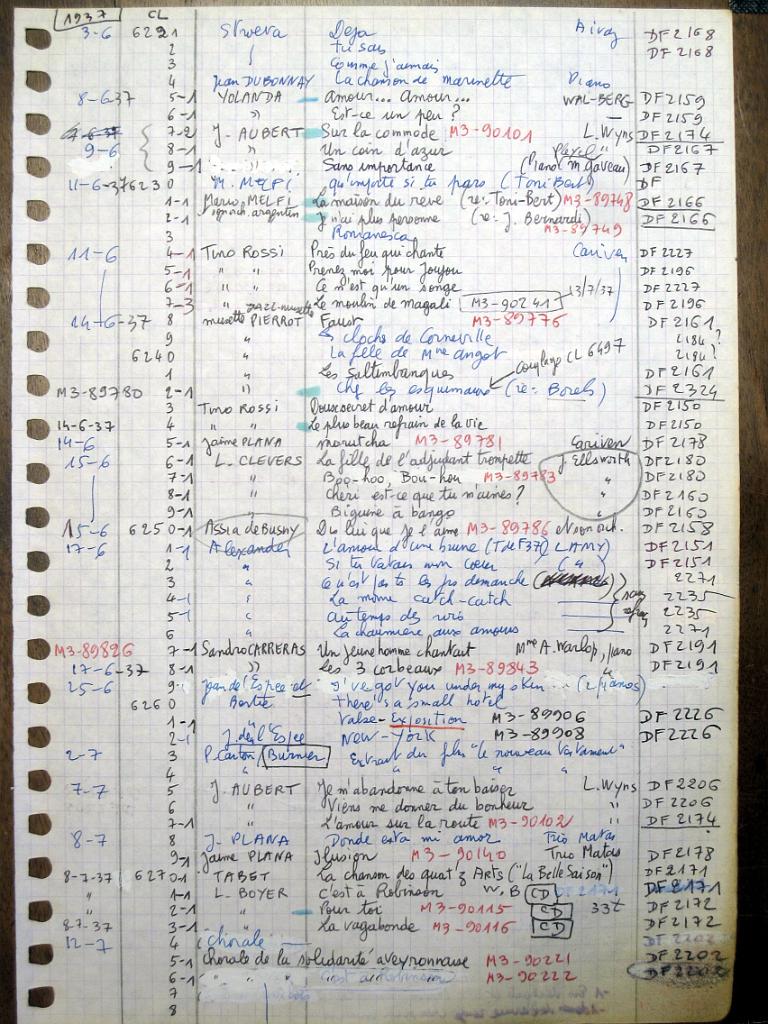 1937 CL
3-6 6221 Stroeva Déjà Aivaz DF2168
2 Tu sais DF2168
3 Comme j'aimais
4 Jean DUBONNAY La chanson de marinette Piano
8-6-37 5-1 YOLANDA Amour... Amour... WAL-BERG DF2159
6-1 " Est-ce un peu ? — DF2159
7-6-37 7-2 J. AUBERT Sur la commode M3-90101 L. Wyns DF2174
9-6 8-1 " Un coin d'azur DF2167
9-1 " Sans importance (Piano m. gaveau) DF2167
11-6-37 6230 M. MELFI qu'importe si tu pars (Toni Bert) DF
1-1 Mario MELFI La maison du rêve (re: Toni-Bert) M3-89748 DF2166
2-1 argentin J'n'ai plus personne (re: J. Bernardi) DF2166
3 Romanesca M3-89749
11-6 4-1 Tino ROSSI Près du feu qui chante Cariven DF2227
5-1 " " Prenez moi pour joujou DF2196
6-1 " " Ce n'est qu'un songe 13/7/37 DF2227
7-3 " Le moulin de magali M3-90241 DF2196
14-6-37 8 musette PIERROT jazz-musette Faust M3-89776 DF2161
9 " Les clochs de Corneville 2184 ?
6240 " La fille de Mme Angot 2184 ?
1 " Les Saltimbanques couplage CL 6497 DF2161
M3-89780 2-1 " Chez les esquimaux (re: Borels) DF2324
3 Tino ROSSI Doux secret d'amour DF2150
14-6-37 4 " " Le plus beau refrain de la vie DF2150
14-6 5-1 Jaime PLANA marutcha M3-89781 Cariven DF2178
15-6 6-1 L. CLEVERS La fille de l'adjudant trompette J. Ellsworth DF2180
7-1 " Boo-hoo, Bou-hou M3-89783 " DF2180
8-1 " Chéri est-ce que tu m'aimes ? " DF2160
9-1 " Biguine à bango " DF2160
15-6 6250-1 Assia de Busny Dis lui que je l'aime M3-89786 DF2158
17-6 1-1 Alexander L'amour d'une brune (T de F 37) LAMY DF2151
2 " Si tu savais mon coeur ( " ) DF2151
3 " Ce n'est pas ts les jrs dimanche 2271
4-1 " La môme catch-catch sans 2235
5-1 " Au temps des 2235
6 " La chaumière aux amours 2271
M3-89826 7-1 Sandro CARRERAS Un jeune homme chantait Mme A. Warlop, piano DF2191
17-6-37 8-1 " Les 3 corbeaux M3-89843 " DF2191
25-6 9- Jean de l'Espée et I've got you under my skin (2 pianos)
6260 There's a small hotel
1-1 " Valse-Exposition M3-89906 DF2226
2-1 J. de l'Espée New-York M3-89908 DF2226
2-7 3 P. Carton / Burnier Extrait du film "le nouveau testament"
4 " " "
7-7 5 J. AUBERT Je m'abandonne à ton baiser L. Wyns DF2206
6 " Viens me donner du bonheur " DF2206
7-1 " L'amour sur la route M3-90102 " DF2174
8-7 8 J. PLANA Donde esta mi amor Trio Matas
9-1 Jaime PLANA Ilusion M3-90140 Trio Matas DF2178
8-7-37 6270-1 TABET La chanson des quat'z Arts ("La Belle Saison") DF2171
" 1-1 L. BOYER c'est à Robinson W, B CD DF2171
" 2-1 " Pour toi M3-90115 CD 33t DF2172
8-7-37 3-1 " La vagabonde M3-90116 CD DF2172
12-7 4 chorale —
5-1 chorale de la solidarité aveyronnaise M3-90221 DF2202
6-1 " " M3-90222 DF2202
7
8